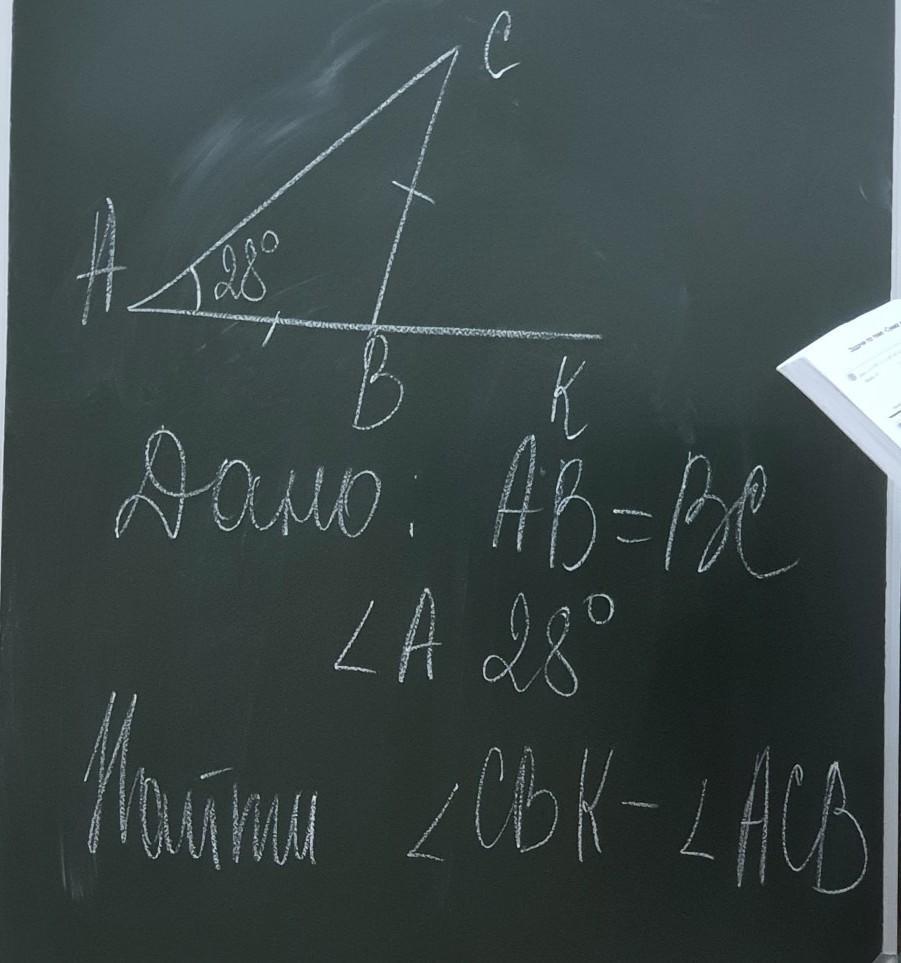 C
A
28°
B
K
Дано: AB=BC
∠A 28°
Найти ∠CBK-∠ACB